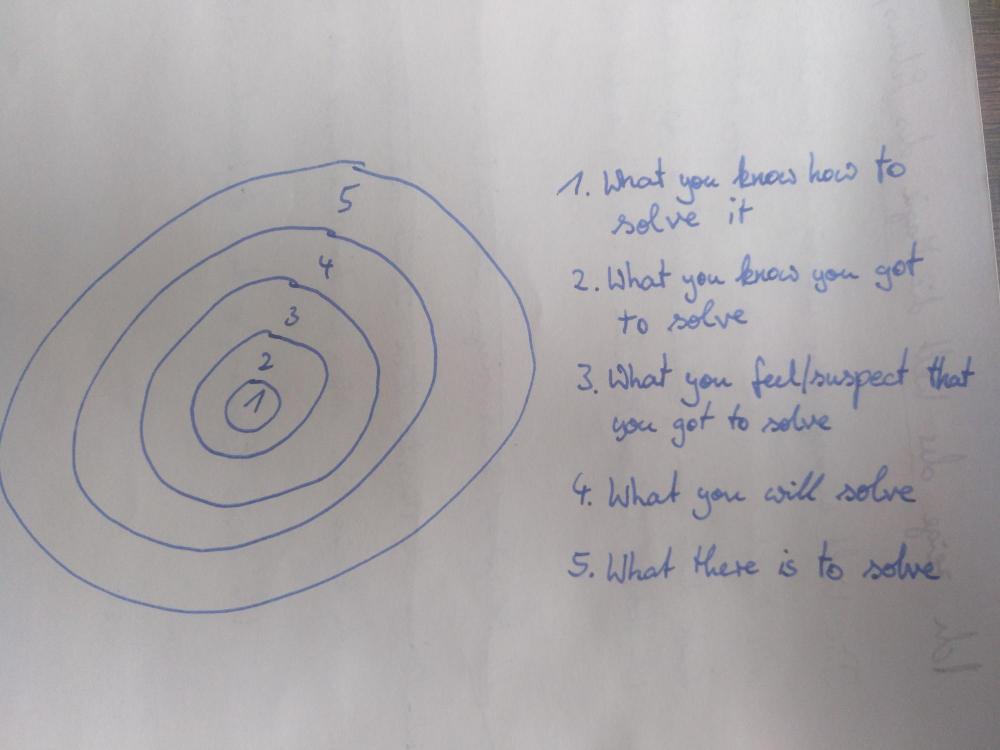 5
4
3
2
1
1. What you know how to
solve it
2. What you know you got
to solve
3. What you feel/suspect that
you got to solve
4. What you will solve
5. What there is to solve